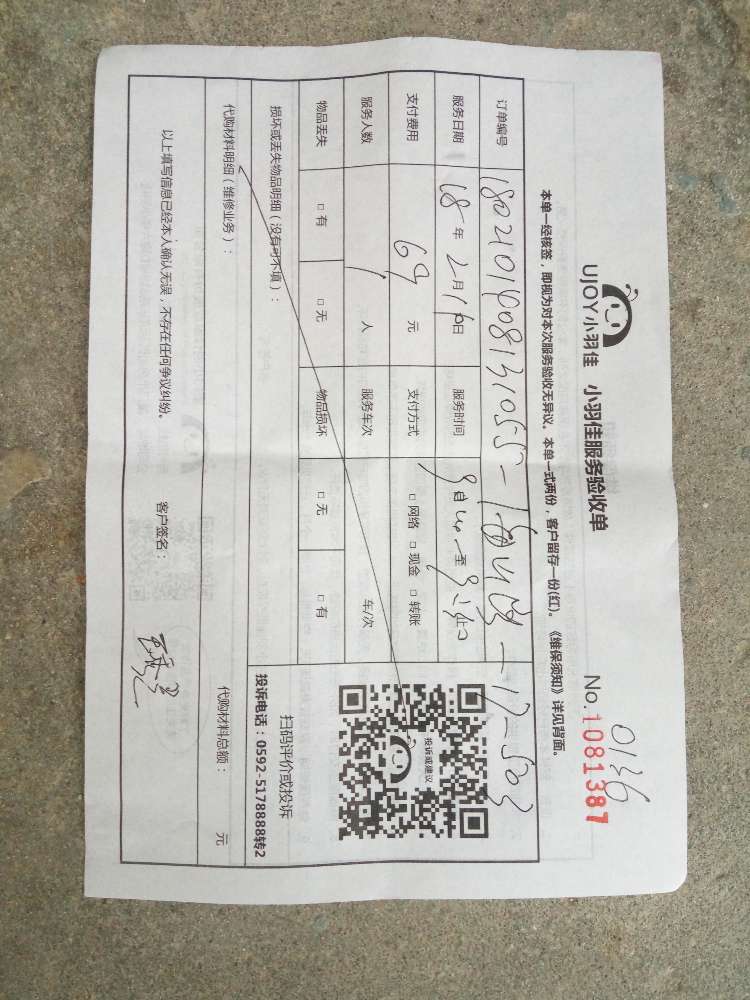 0136
UJOY小羽佳 小羽佳服务验收单 No.1081387
本单一经核签，即视为对本次服务验收无异议。本单一式两份，客户留存一份(红)。《维保须知》详见背面。
订单编号
服务日期 18年2月10日 服务时间 自 至 止
支付费用 69元 支付方式 □网络 □现金 □转账
服务人数 1人 服务车次 车/次
物品丢失 □有 □无 物品损坏 □无 □有
损坏或丢失物品明细（没有可不填）：
投诉或建议
扫码评价或投诉
投诉电话：0592-5178888转2
代购材料明细（维修业务）： 代购材料总额： 元
以上填写信息已经本人确认无误，不存在任何争议纠纷。 客户签名：